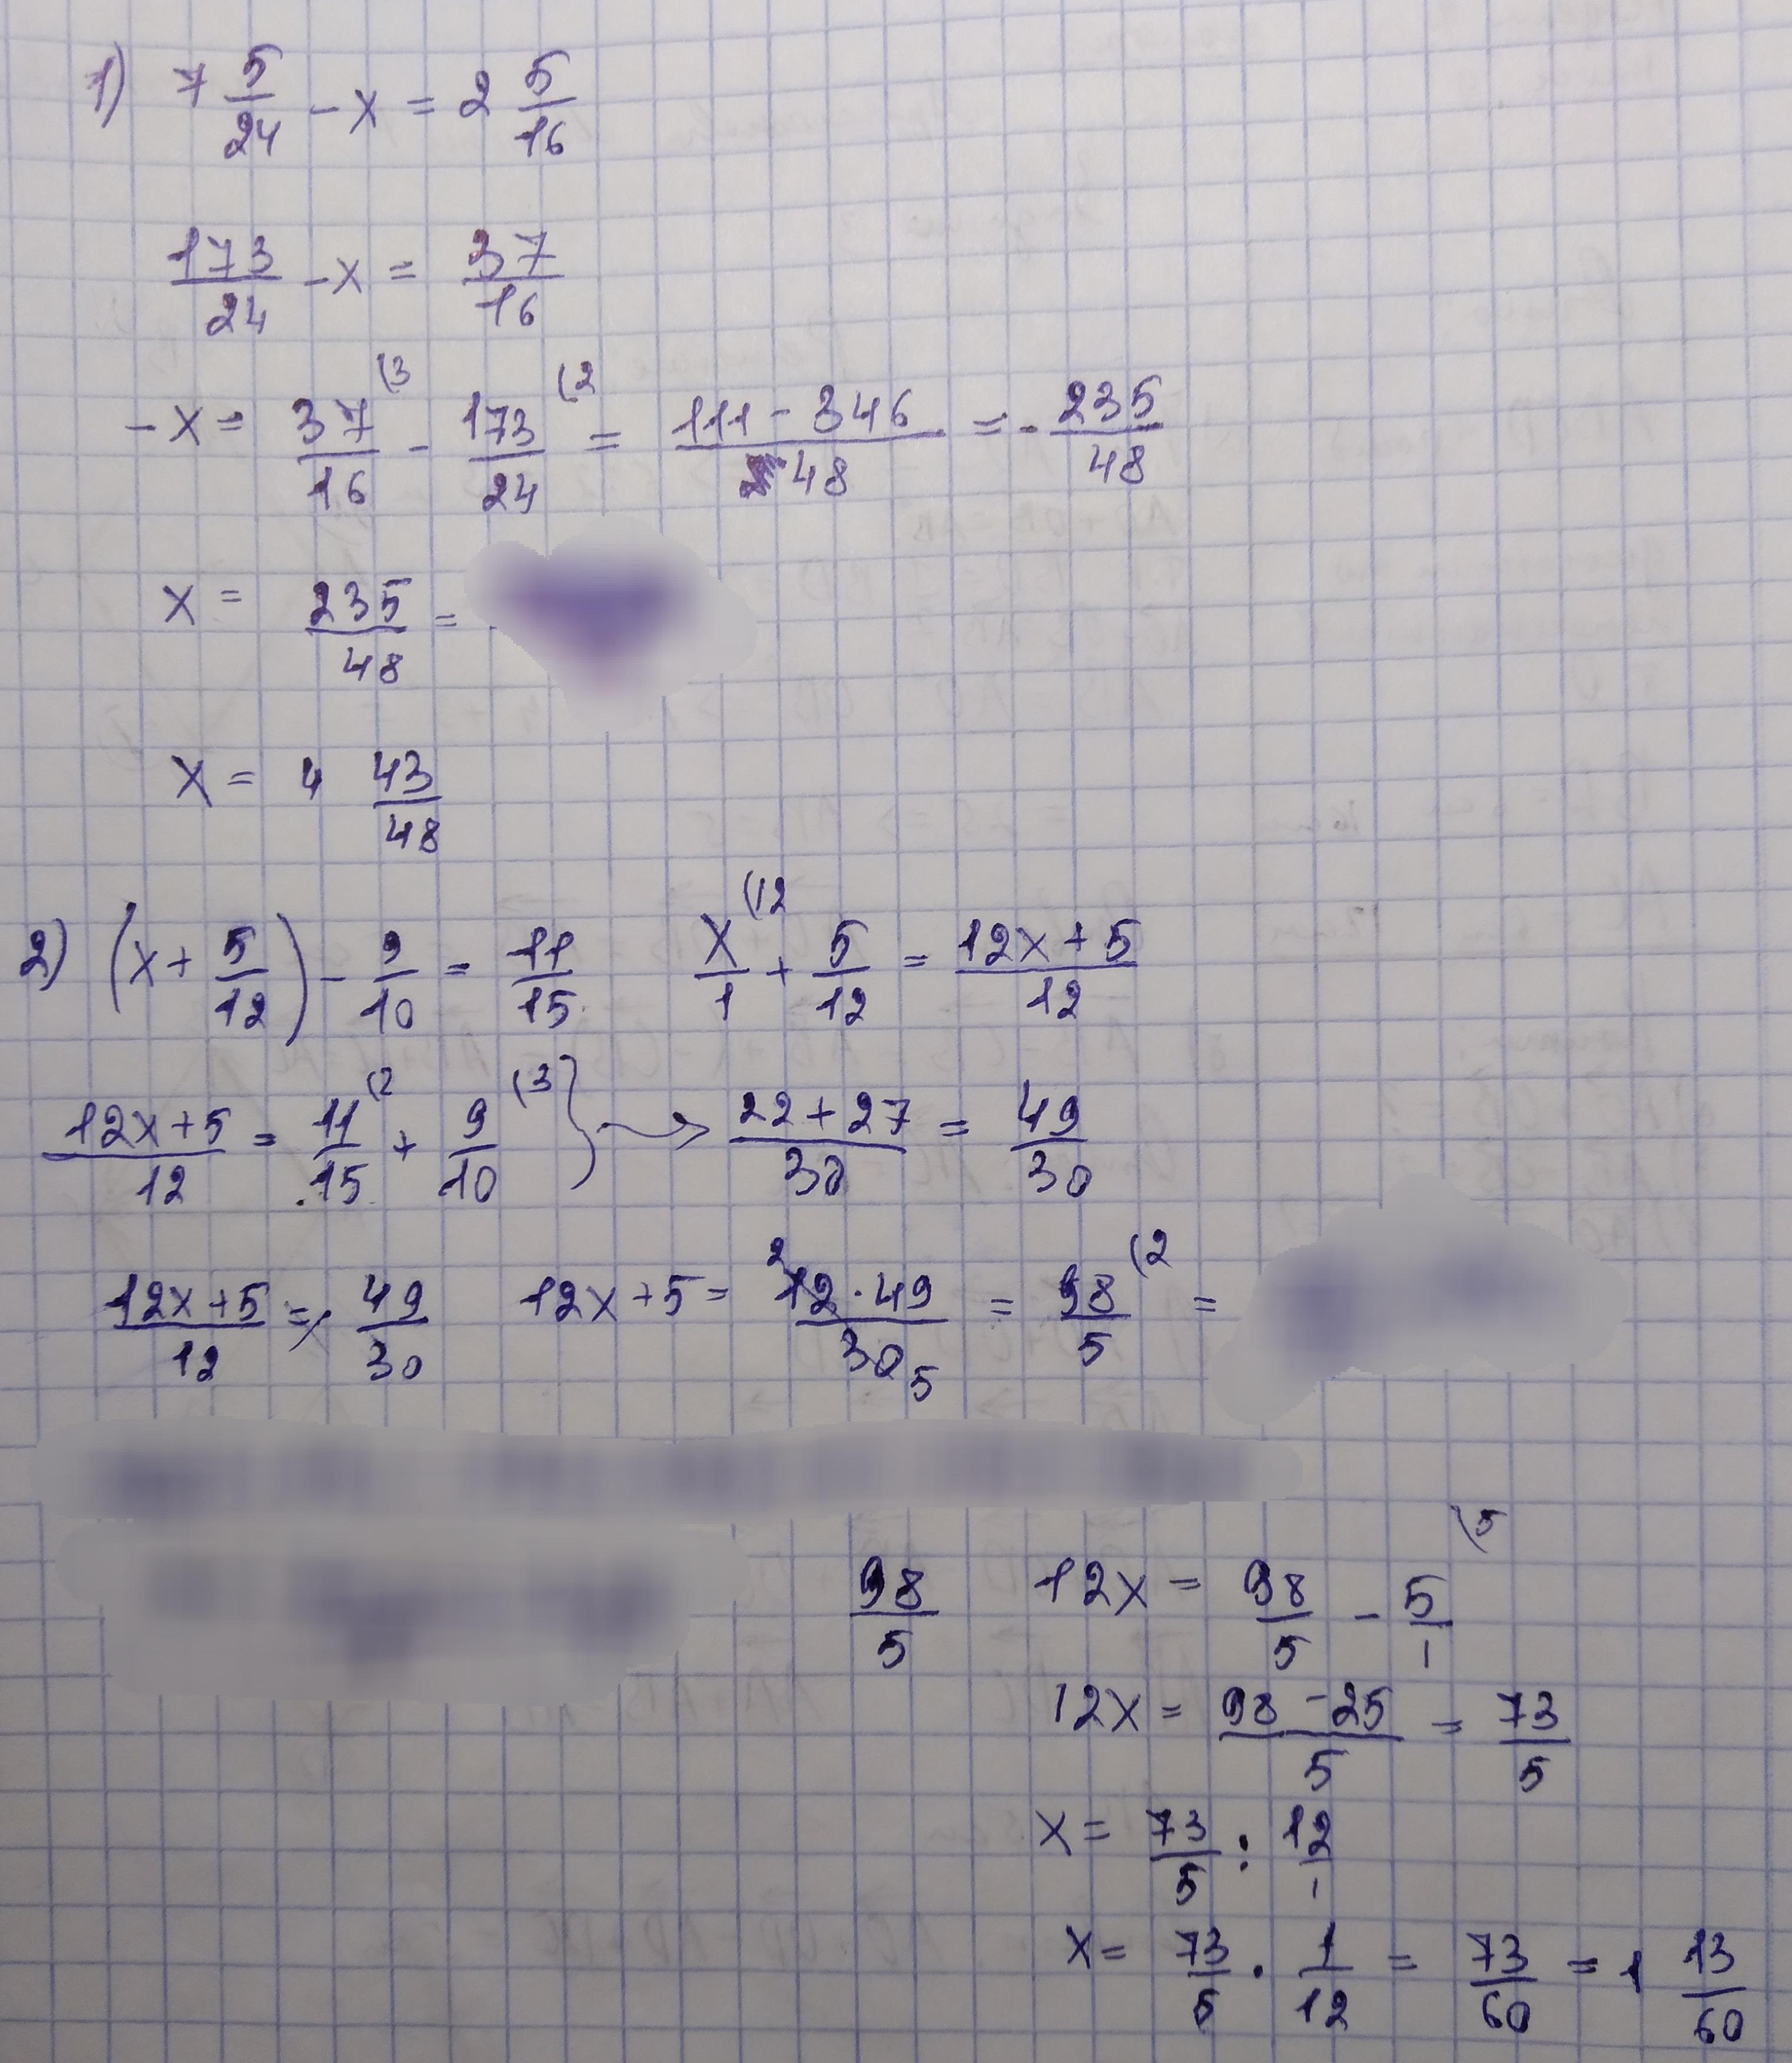 1) 7 5/24 - x = 2 5/16
173/24 - x = 37/16
- x = 37/16 (3 - 173/24 (2 = 111 - 346/48 = - 235/48
x = 235/48 =
x = 4 43/48
2) (x + 5/12) - 9/10 = 11/15 x/1 (12 + 5/12 = 12x + 5/12
12x + 5/12 = 11/15 (2 + 9/10 (3 } → 22 + 27/30 = 49/30
12x + 5/12 = 49/30 12x + 5 = 2 12 · 49/30 5 = 98/5 (2 =
98/5 12x = 98/5 - 5/1 (5
12x = 98 - 25/5 = 73/5
x = 73/5 : 12/1
x = 73/5 · 1/12 = 73/60 = 1 13/60